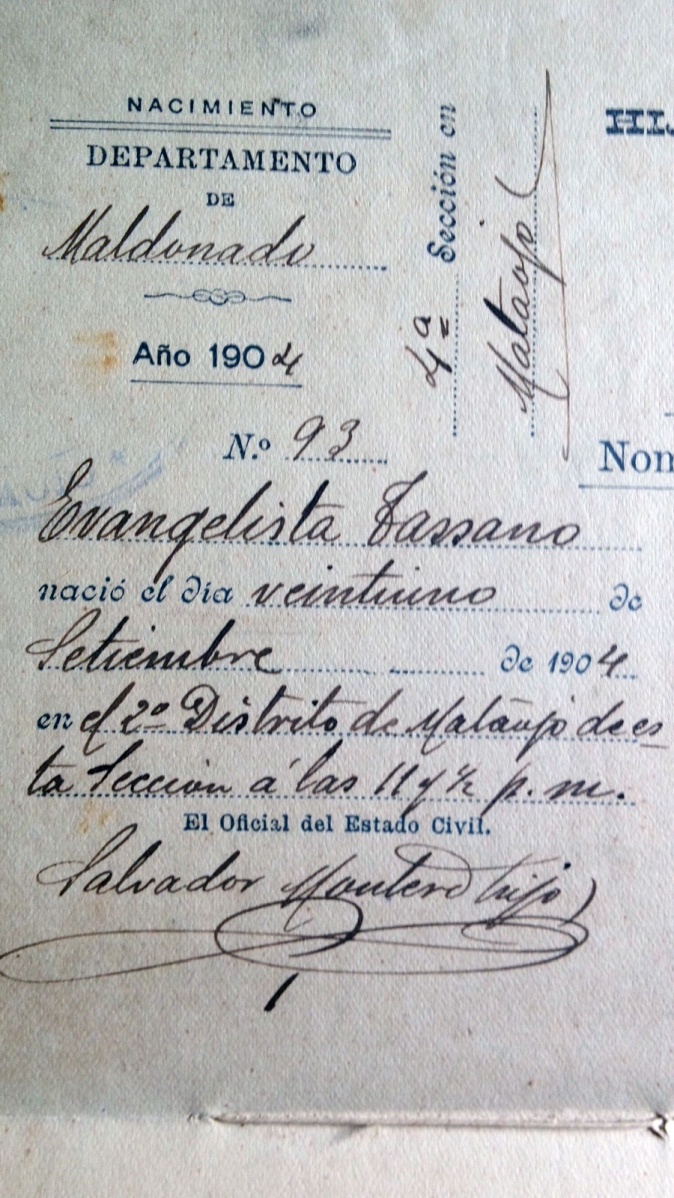 NACIMIENTO
DEPARTAMENTO
DE
Maldonado
Año 1904
N.º 93
4ª Sección en
Mataojo
HIJ
Nom
Evangelista Tassano
nació el día veintiuno de
Setiembre de 1904
en el 2º Distrito de Mataojo de es-
ta Sección á las 11 y ½ p. m.
El Oficial del Estado Civil.
Salvador Montero hijo